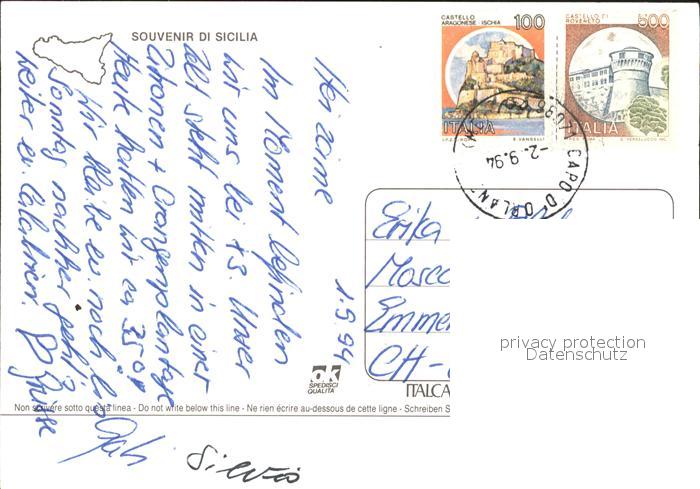 SOUVENIR DI SICILIA
CASTELLO
ARAGONESE - ISCHIA
100
ITALIA
CASTELLO DI
ROVERETO
500
ITALIA
CAPO D'ORLAN
2.9.94
1.9.94
Im Moment befinden
wir uns bei +3. Unser
Zelt steht mitten in einer
Zitronen + Orangenplantage
Heute hatten wir ca 35°
Wir bleiben noch bis
Sonntag nachher geht's
weiter Calabrien.
Grüsse
Gabi
Silvio
Erika
Mosc
Emme
CH-
SPEDISCI
QUALITÀ
ITALCA
Non scrivere sotto questa linea - Do not write below this line - Ne rien écrire au-dessous de cette ligne - Schreiben S
privacy protection
Datenschutz